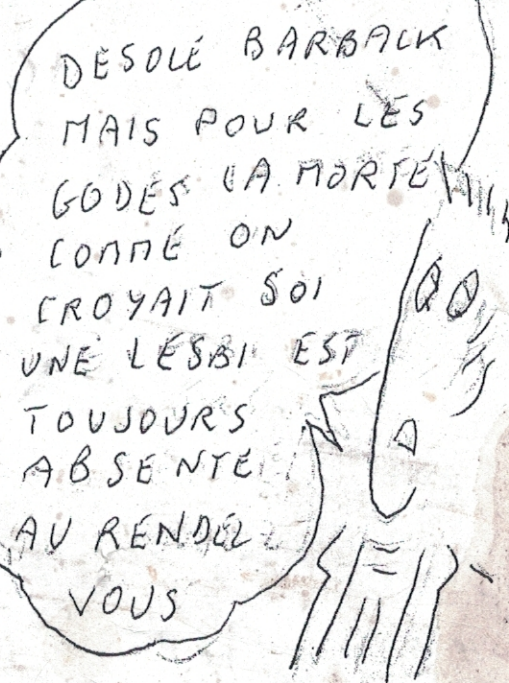 DESOLÉ BARBACK
MAIS POUR LES
GODES LA MORTE
COMME ON
CROYAIT SOI
UNE LESBI EST
TOUJOURS
ABSENTE
AU RENDEZ
VOUS